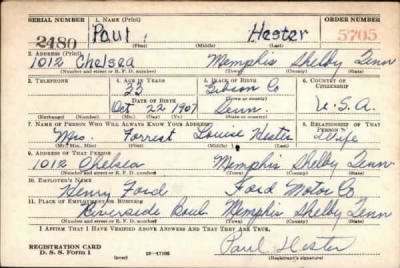 SERIAL NUMBER 1. NAME (Print) ORDER NUMBER
2480 Paul Hester 5705
(First) (Middle) (Last)
2. ADDRESS (Print)
1012 Chelsea Memphis Shelby Tenn
(Number and street or R. F. D. number) (Town) (County) (State)
3. TELEPHONE 4. AGE IN YEARS 5. PLACE OF BIRTH 6. COUNTRY OF CITIZENSHIP
32 Gibson Co
DATE OF BIRTH (Town or county)
Oct 22 1907 Tenn. U.S.A.
(Exchange) (Number) (Mo.) (Day) (Yr.) (State or country)
7. NAME OF PERSON WHO WILL ALWAYS KNOW YOUR ADDRESS 8. RELATIONSHIP OF THAT PERSON
Mrs. Forrest Louise Hester Wife
(Mr., Mrs., Miss) (First) (Middle) (Last)
9. ADDRESS OF THAT PERSON
1012 Chelsea Memphis Shelby Tenn
(Number and street or R. F. D. number) (Town) (County) (State)
10. EMPLOYER'S NAME
Henry Ford Ford Motor Co
11. PLACE OF EMPLOYMENT OR BUSINESS
Riverside Boul. Memphis Shelby Tenn
(Number and street or R. F. D. number) (Town) (County) (State)
I AFFIRM THAT I HAVE VERIFIED ABOVE ANSWERS AND THAT THEY ARE TRUE.
Paul Hester
REGISTRATION CARD
D. S. S. Form 1 (over) (Registrant's signature)